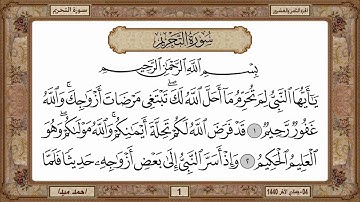 سورة التحريم
الجزء الثامن والعشرون
سُورَةُ التَّحْرِيمِ
بِسْمِ اللَّهِ الرَّحْمَٰنِ الرَّحِيمِ
يَٰٓأَيُّهَا ٱلنَّبِيُّ لِمَ تُحَرِّمُ مَآ أَحَلَّ ٱللَّهُ لَكَۖ تَبْتَغِي مَرْضَاتَ أَزْوَٰجِكَۚ وَٱللَّهُ
غَفُورٌ رَّحِيمٌ ١ قَدْ فَرَضَ ٱللَّهُ لَكُمْ تَحِلَّةَ أَيْمَٰنِكُمْۚ وَٱللَّهُ مَوْلَىٰكُمْۖ وَهُوَ
ٱلْعَلِيمُ ٱلْحَكِيمُ ٢ وَإِذْ أَسَرَّ ٱلنَّبِيُّ إِلَىٰ بَعْضِ أَزْوَٰجِهِۦ حَدِيثًا فَلَمَّا
1
1440